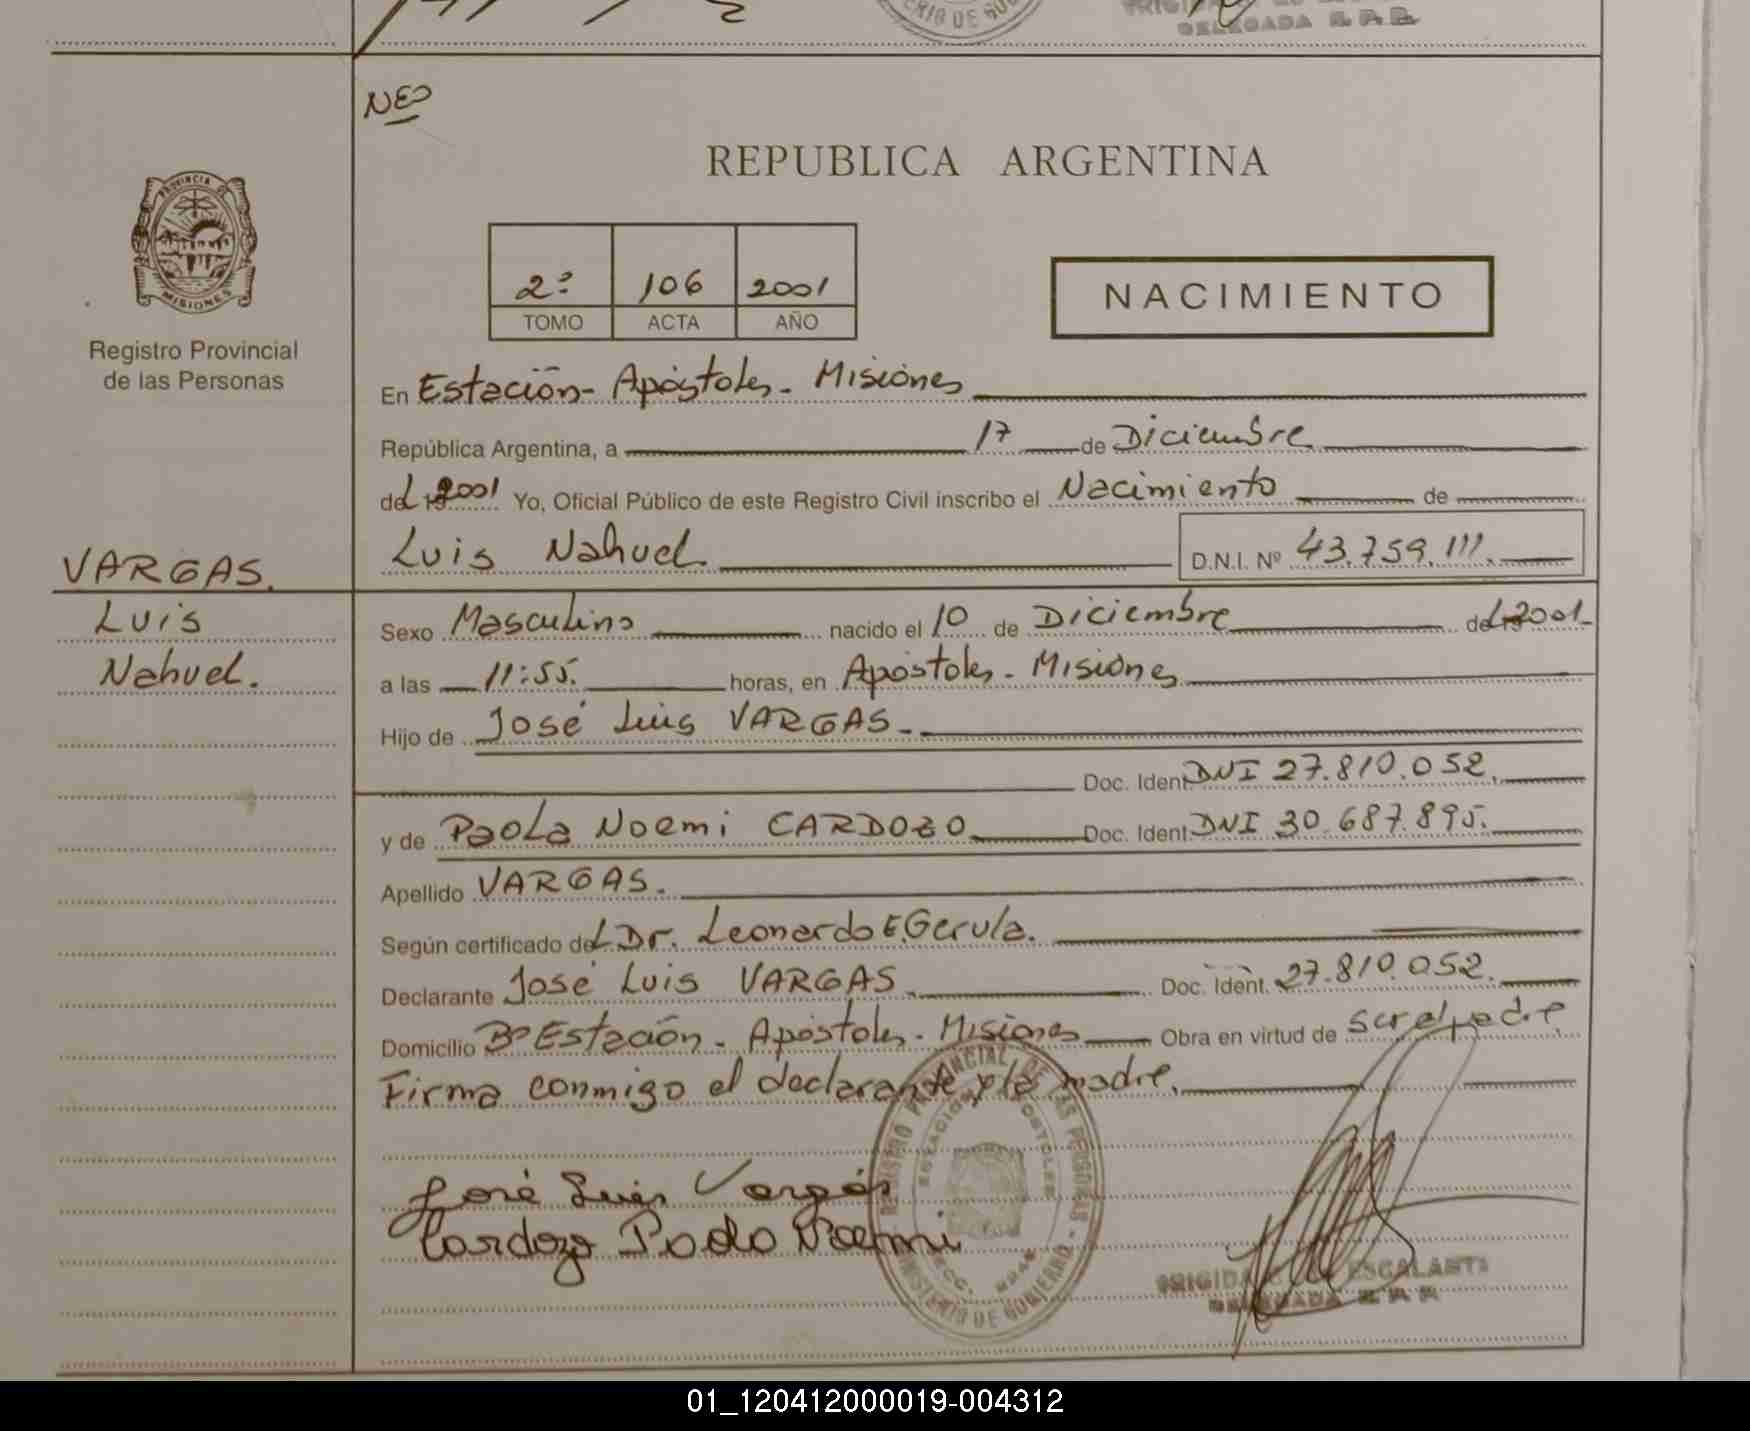 DELEGADA R.P.P.
NEO
REPUBLICA ARGENTINA
PROVINCIA DE
MISIONES
Registro Provincial
de las Personas
2º 106 2001
TOMO ACTA AÑO
NACIMIENTO
En Estación - Apóstoles - Misiones
República Argentina, a 17 de Diciembre
del 2001 Yo, Oficial Público de este Registro Civil inscribo el Nacimiento de
VARGAS.
Luis Nahuel
D.N.I. Nº 43.759.111.
Luis
Nahuel.
Sexo Masculino nacido el 10 de Diciembre del 2001
a las 11:55. horas, en Apóstoles - Misiones
Hijo de José Luis VARGAS
Doc. Ident. DNI 27.810.052.
y de Paola Noemi CARDOZO Doc. Ident. DNI 30.687.895.
Apellido VARGAS.
Según certificado del Dr. Leonardo E. Gerula.
Declarante José Luis VARGAS Doc. Ident. 27.810.052.
Domicilio Bº Estación - Apóstoles - Misiones Obra en virtud de ser el padre
Firma conmigo el declarante y la madre.
REGISTRO PROVINCIAL DE LAS PERSONAS - MINISTERIO DE GOBIERNO
José Luis Vargas
Cardozo Paola Noemi
ESCALANTE
DELEGADA R.P.P.
01_120412000019-004312